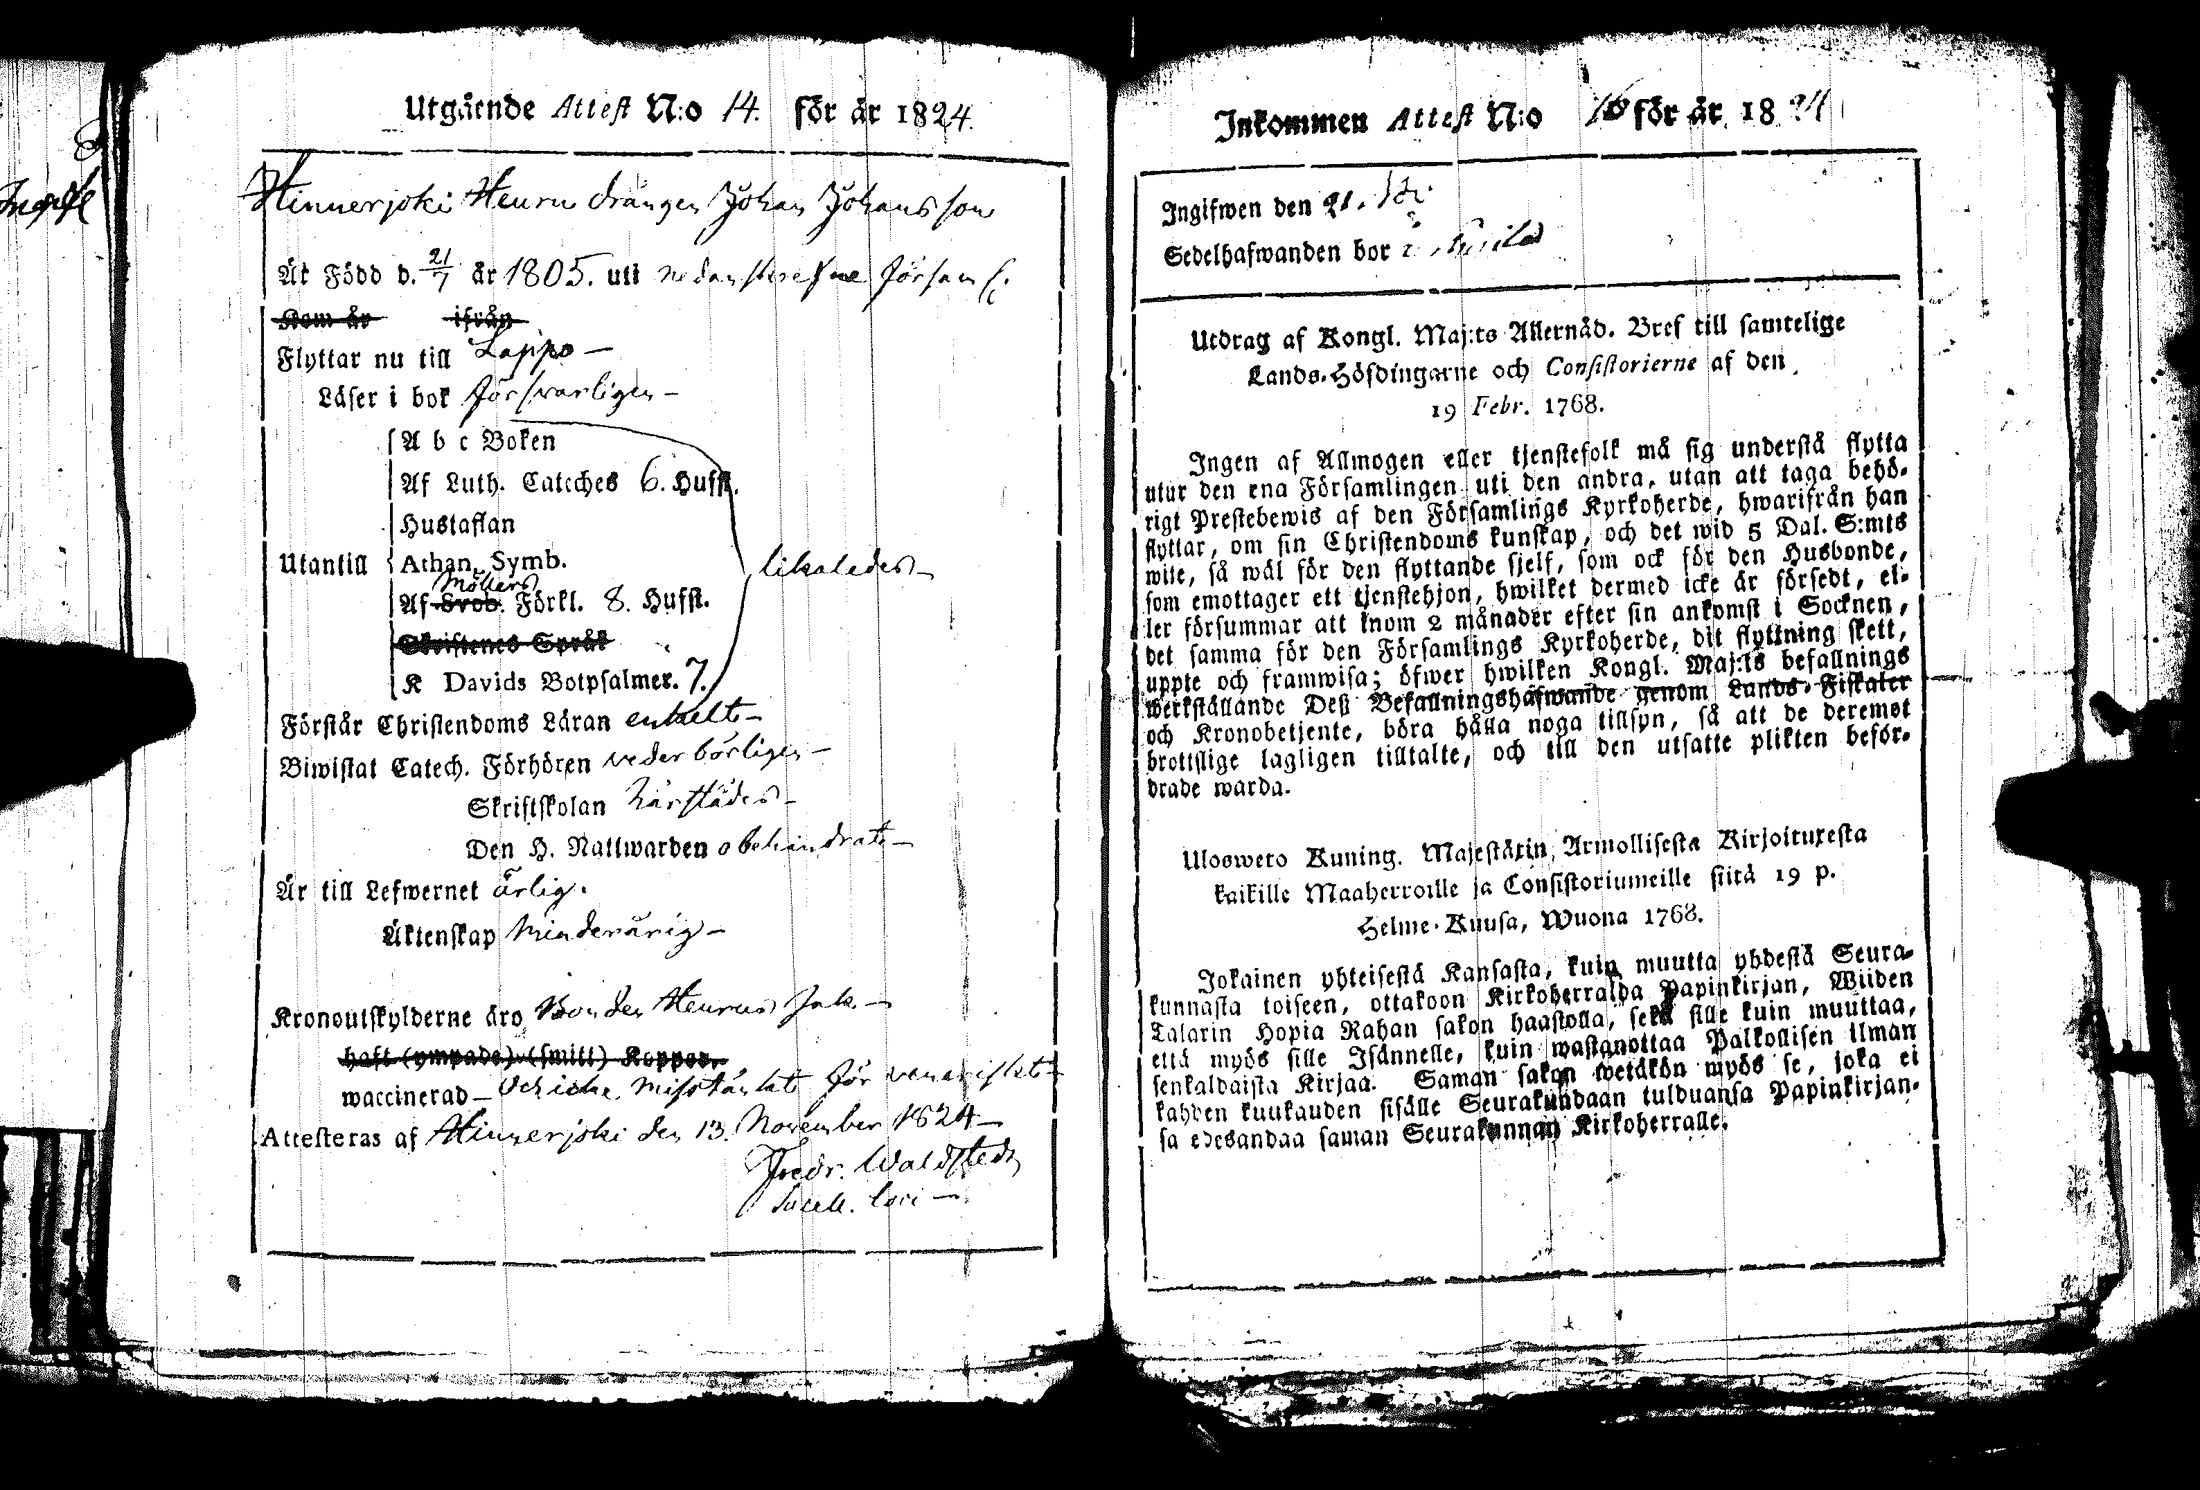 Utgående Attest N:o 14. för år 1824.
Hinnerjoki drängen Johan Johans son
Är Född d. 21/7 år 1805. uti nedanskrefne församl.
Kom år ifrån
Flyttar nu till Lappo —
Läser i bok försvarligen —
A b c Boken
Af Luth. Cateches 6. Hufst.
Hustaflan
Utantill Athan. Symb.
likaledes —
Möllers
Af Sveb. Förkl. 8. Hufst.
Skriftenes Språk
K Davids Botpsalmer. 7.
Förstår Christendoms Läran enkelt —
Biwistat Catech. Förhören vederbörligen —
Skriftskolan härstädes —
Den H. Nattwarden obehindrat —
Är till Lefwernet ärlig.
Äktenskap Minderårig —
Kronoutskylderne äro Bonden —
haft (ympade) (smitt) Koppor.
waccinerad — Och icke misstänkt för veneriskt —
Attesteras af Hinnerjoki den 13. November 1824 —
Fredr. Waldstedt
Sacell. loci —
Inkommen Attest N:o 16 för år 1824
Ingifwen den 21.
Sedelhafwanden bor i
Utdrag af Kongl. Maj:ts Allernåd. Bref till samtelige
Lands-Höfdingarne och Consistorierne af den
19 Febr. 1768.
Ingen af Allmogen eller tjenstefolk må sig understå flytta
utur den ena Församlingen uti den andra, utan att taga behö-
rigt Prestebewis af den Församlings Kyrkoherde, hwarifrån han
flyttar, om sin Christendoms kunskap, och det wid 5 Dal. S:mts
wite, så wäl för den flyttande sjelf, som ock för den Husbonde,
som emottager ett tjenstehjon, hwilket dermed icke är försedt, el-
ler försummar att inom 2 månader efter sin ankomst i Socknen,
det samma för den Församlings Kyrkoherde, dit flyttning skett,
uppte och framwisa; öfwer hwilken Kongl. Maj:ts befallnings
werkställande Deß Befallningshafwande genom Lands-Fiskaler
och Kronobetjente, böra hålla noga tillsyn, så att de deremot
brottslige lagligen tilltalte, och till den utsatte plikten beför-
drade warda.
Ulosweto Kuning. Majestäxin Armollisesta Kirjoituxesta
kaikille Maaherroille ja Consistoriumeille siitä 19 p.
Helme-Kuusa, Wuona 1768.
Jokainen yhteisestä Kansasta, kuin muutta yhdestä Seura-
kunnasta toiseen, ottakoon Kirkoherralda Papinkirjan, Wiiden
Talarin Hopia Rahan sakon haastolla, sekä sille kuin muuttaa,
että myös sille Isännelle, kuin wastanottaa Palkollisen ilman
senkaldaista Kirjaa. Saman sakon wetäkön myös se, joka ei
kahden kuukauden sisälle Seurakundaan tulduansa Papinkirjan-
sa edesandaa saman Seurakunnan Kirkoherralle.